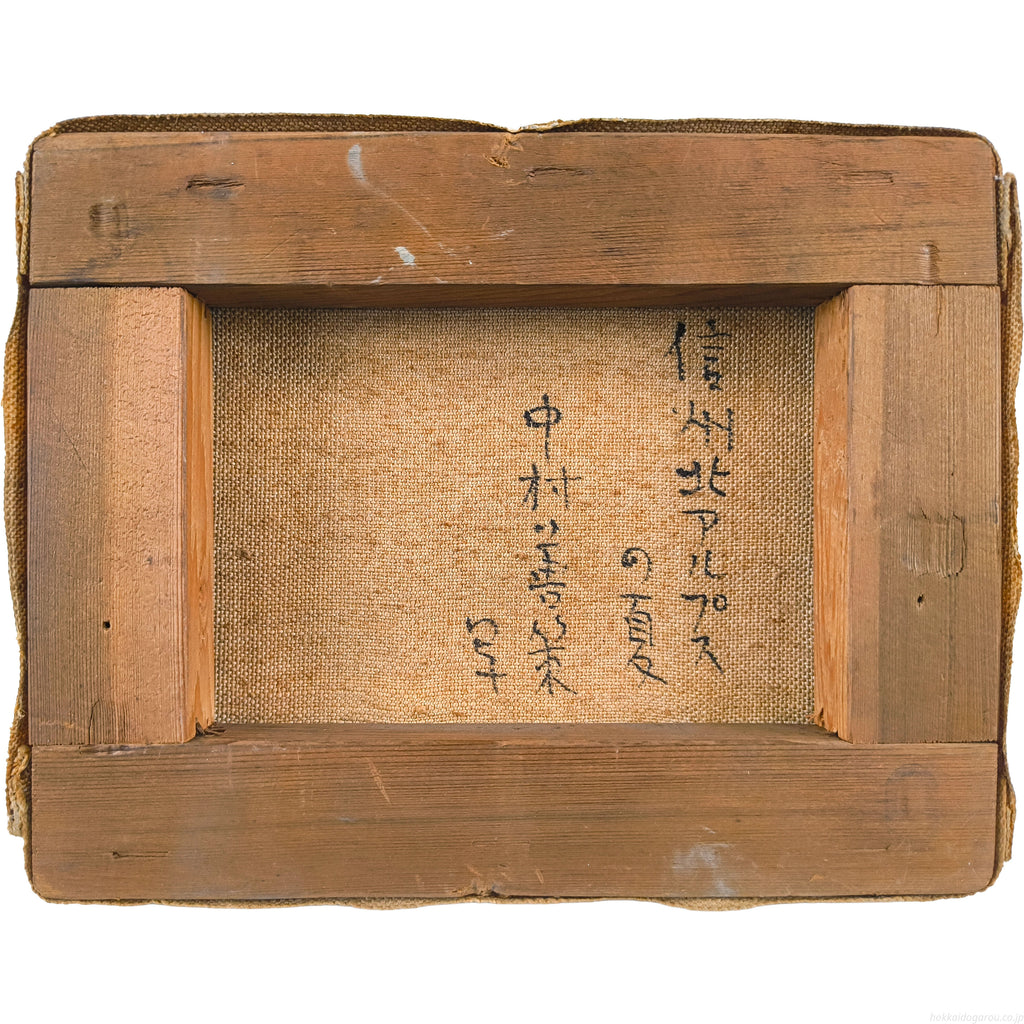 信州北アルプス
の夏
中村善策
hekkaidogarou.co.jp